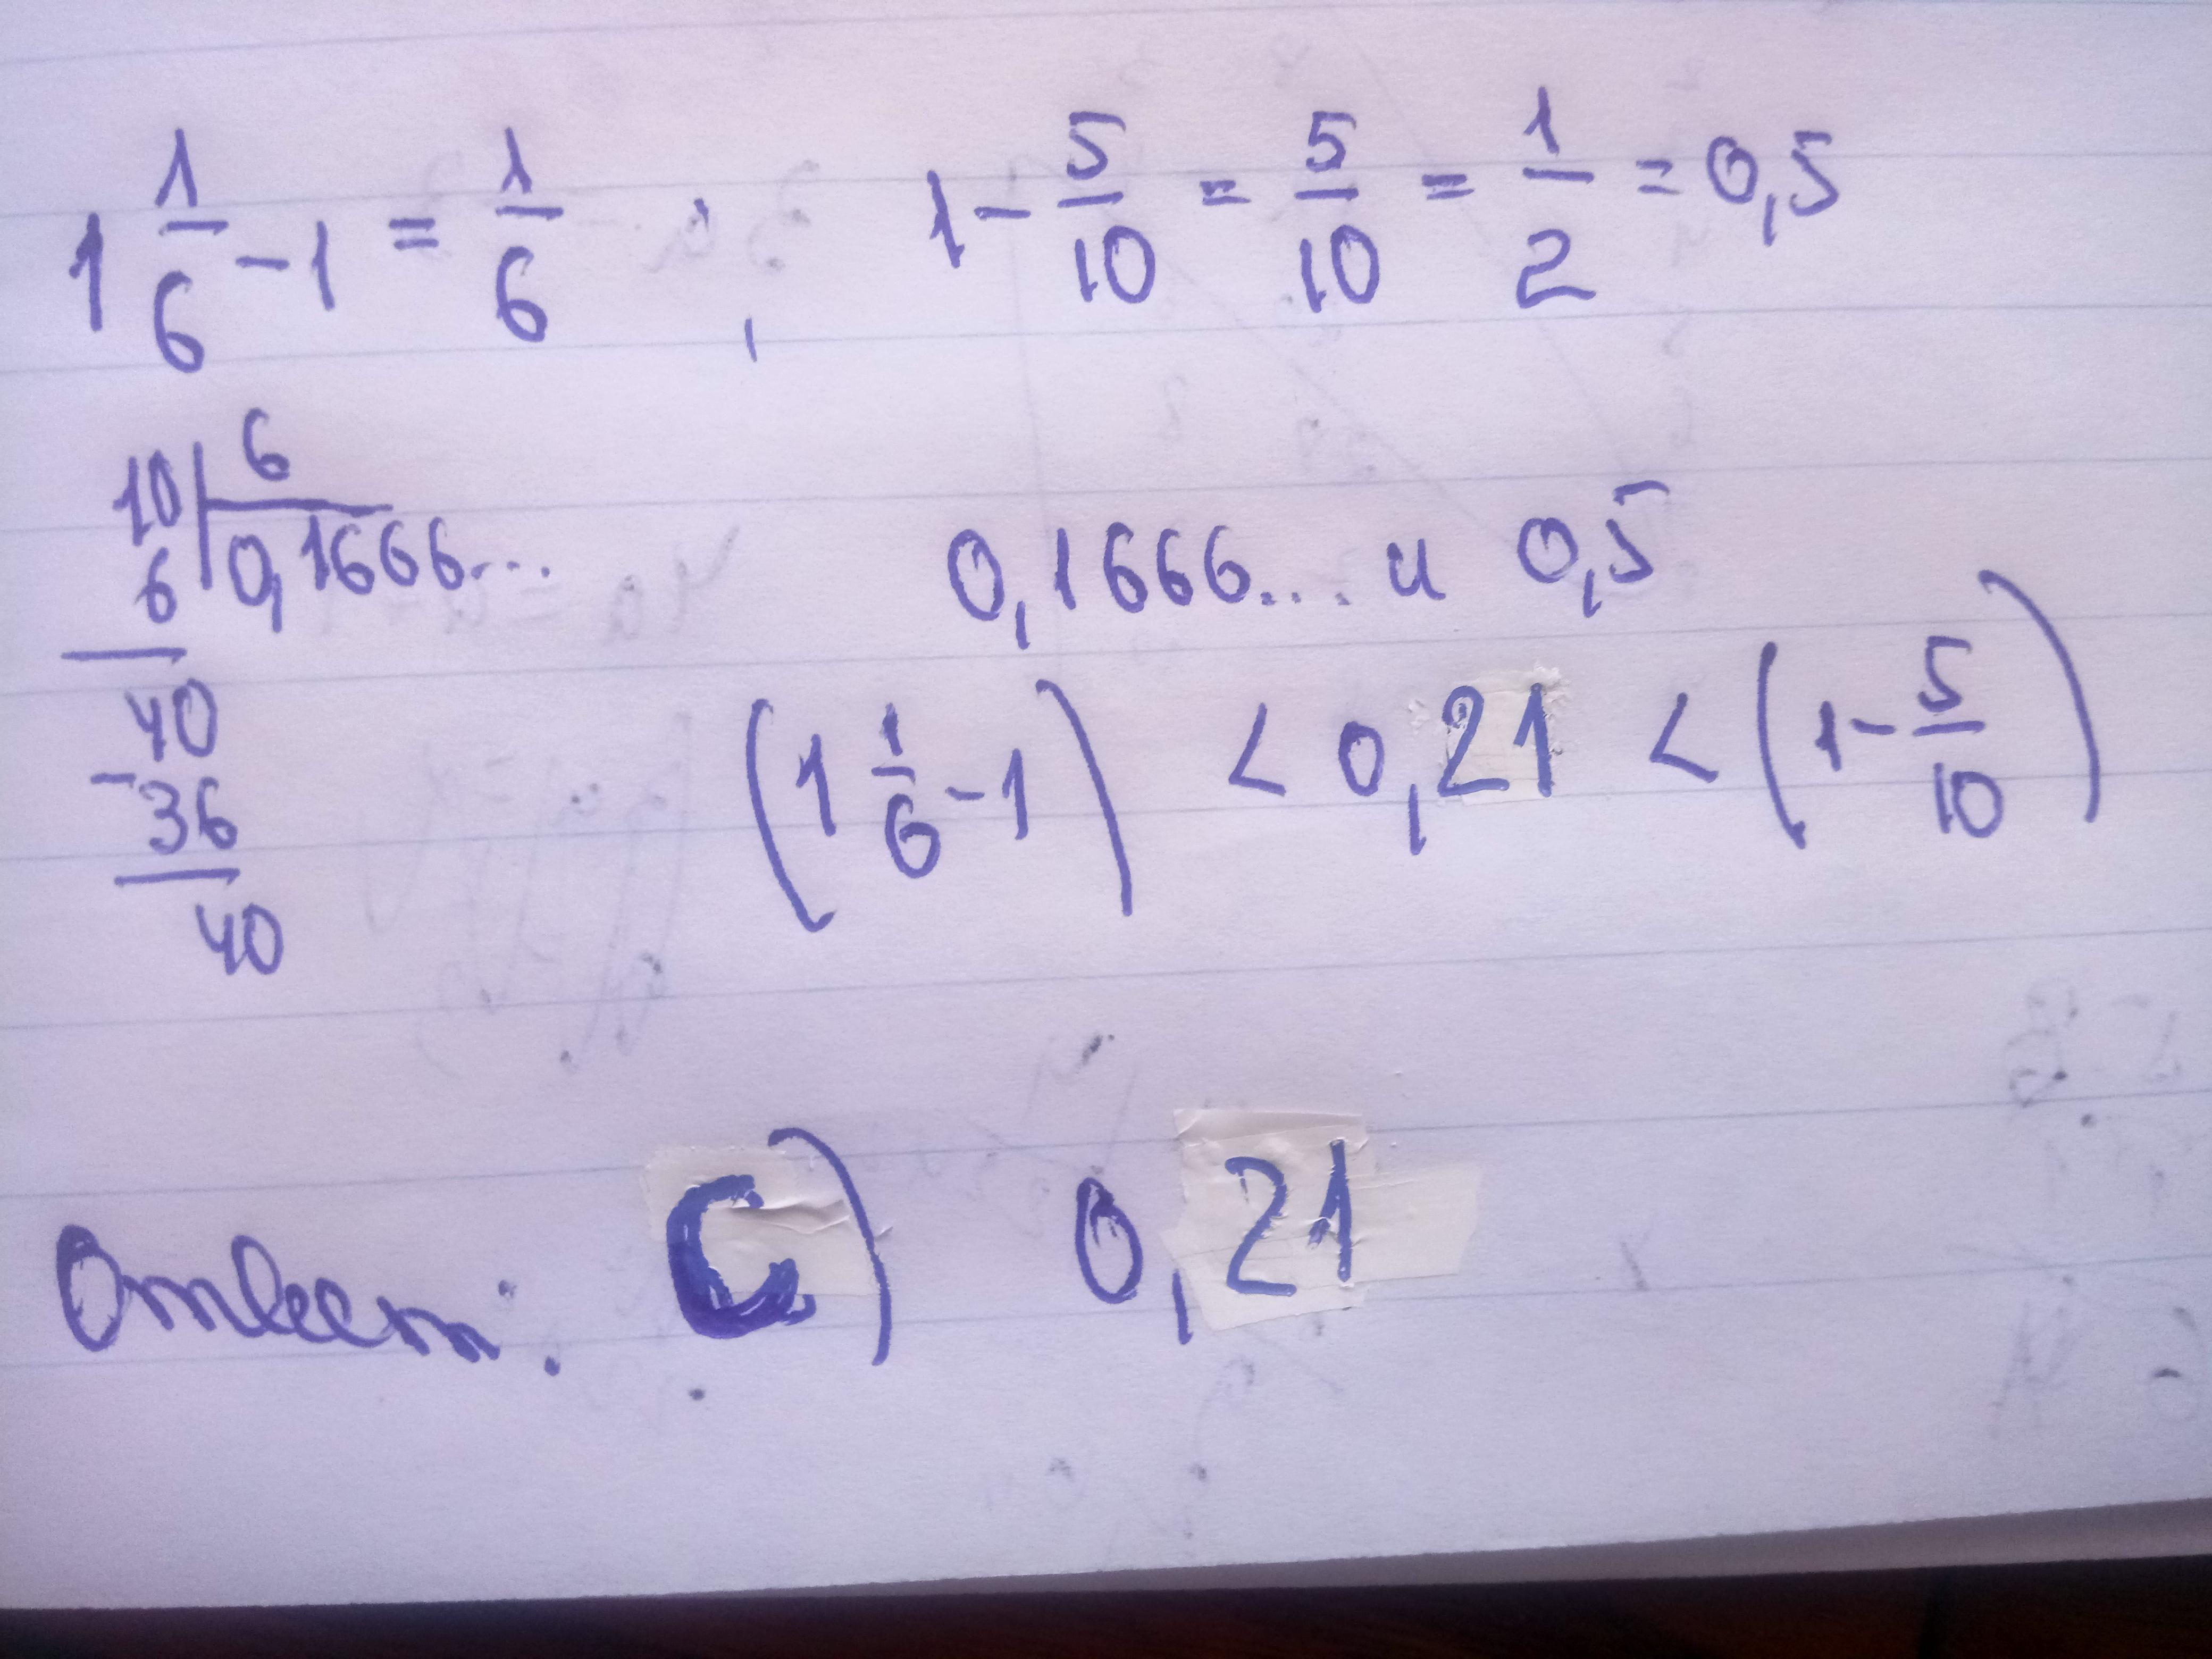 1 1/6 - 1 = 1/6 ; 1 - 5/10 = 5/10 = 1/2 = 0,5
10 | 6
6 0,1666...
40
- 36
40
0,1666... и 0,5
(1 1/6 - 1) < 0,21 < (1 - 5/10)
Ответ: C) 0,21